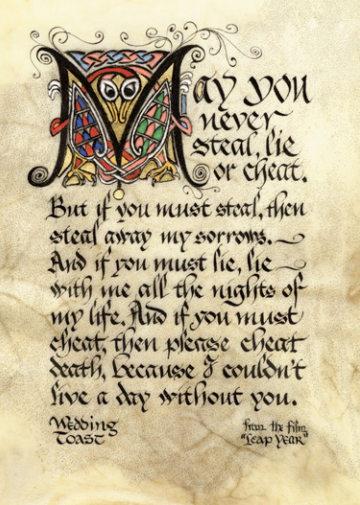 May you
never
steal, lie
or cheat.
But if you must steal, then
steal away my sorrows.
And if you must lie, lie
with me all the nights of
my life. And if you must
cheat, then please cheat
death, because I couldn't
live a day without you.
Wedding
Toast
from the film
"Leap Year"